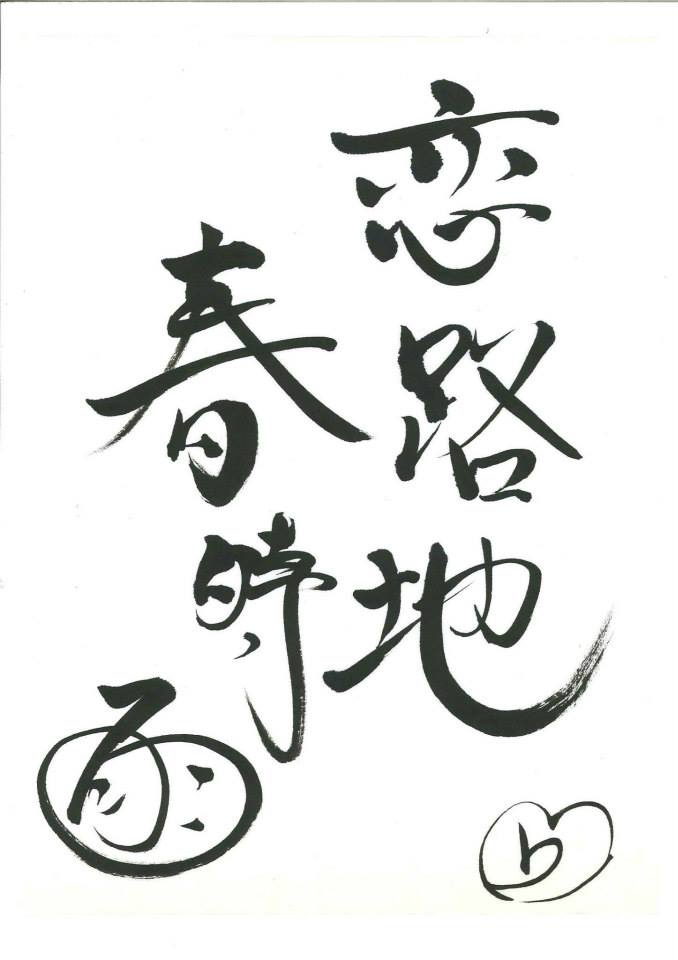 恋路地
春時雨